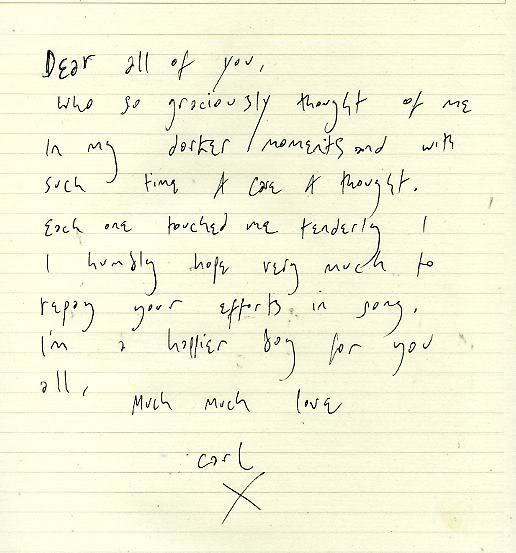 Dear all of you,
who so graciously thought of me
in my darker moments and with
such time & care & thought.
Each one touched me tenderly &
I humbly hope very much to
repay your efforts in song.
I'm a happier boy for you
all,
Much much love
carl
X